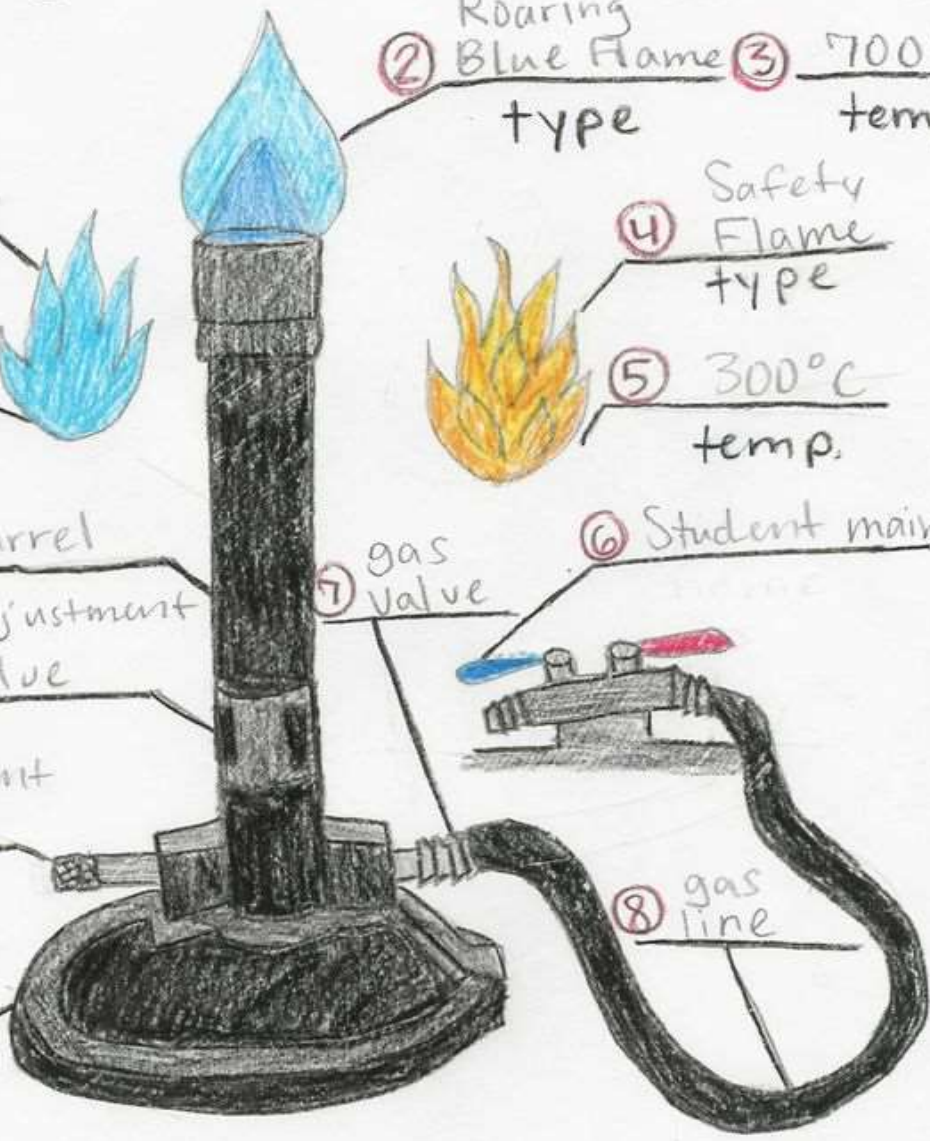 ② Roaring
Blue Flame
type
③ 700
tem
④ Safety
Flame
type
⑤ 300°C
temp.
⑥ Student main
⑦ gas
valve
⑧ gas
line
rrel
justment